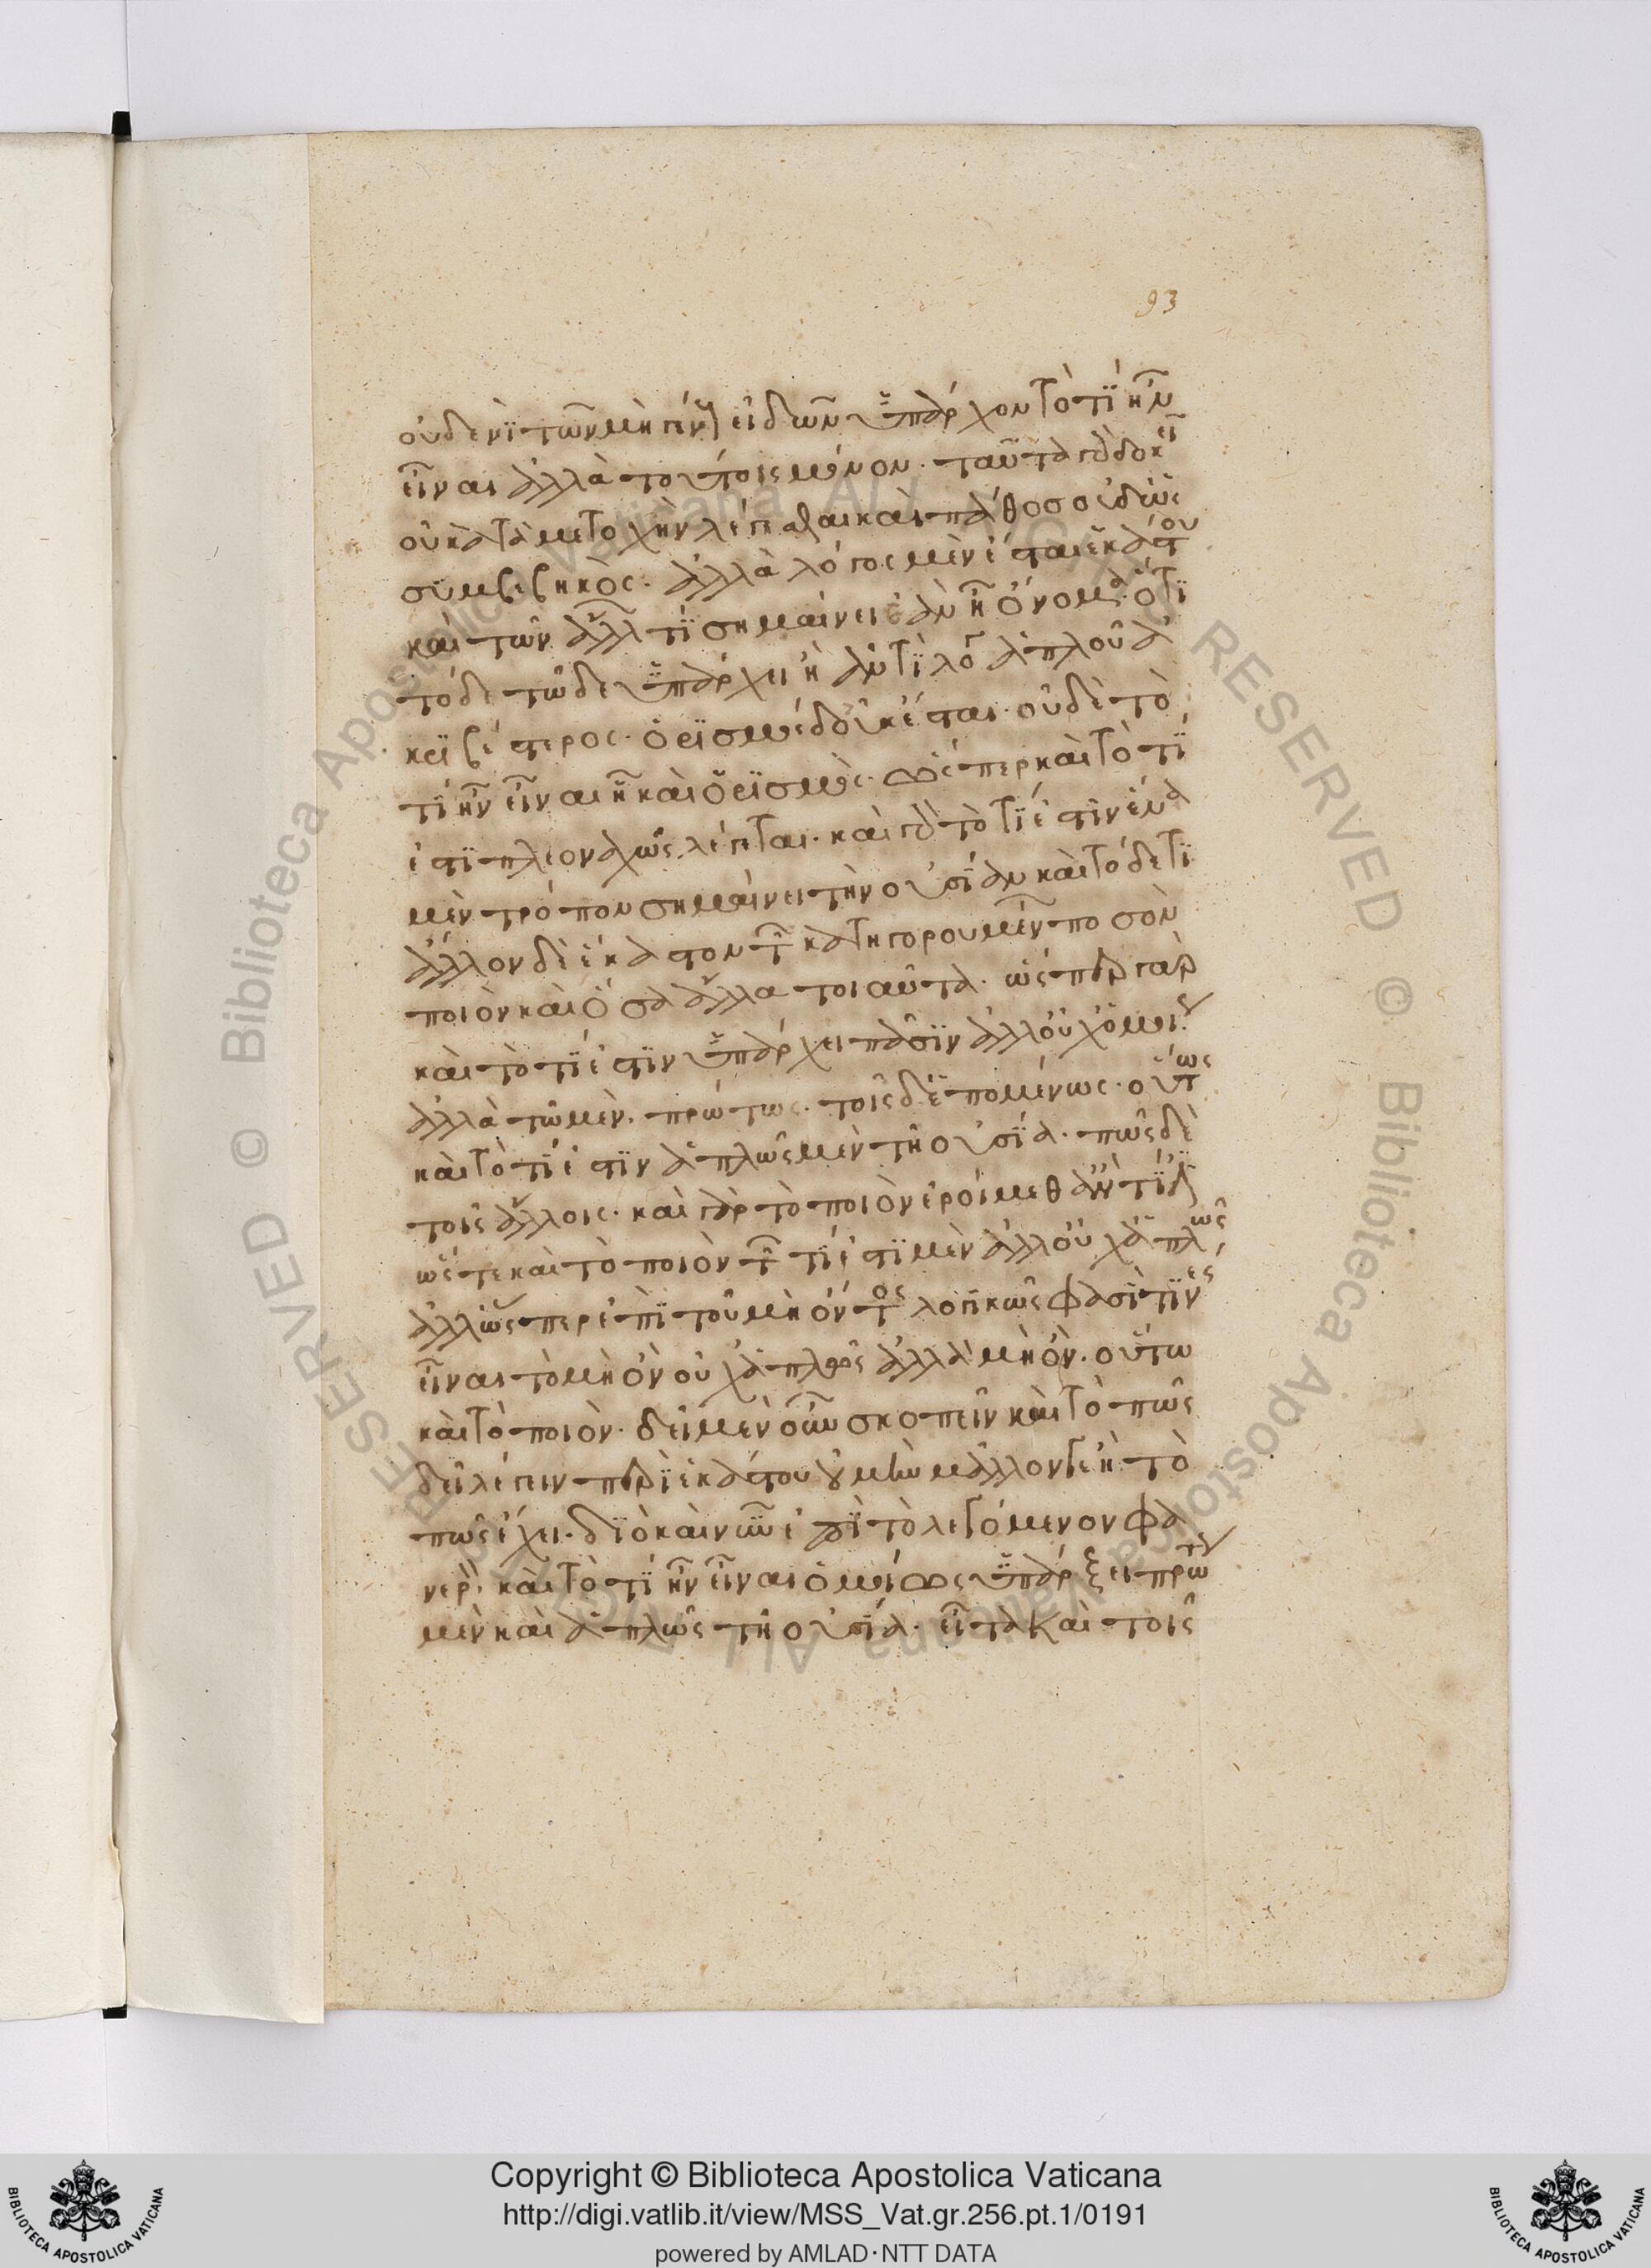 93
οὐδενὶ τῶν μὴ γένους εἰδῶν ὑπάρχον τὸ τί ἦν
εἶναι ἀλλὰ τούτοις μόνον· ταῦτα γὰρ δοκεῖ
οὐ κατὰ μετοχὴν λέγεσθαι καὶ πάθος οὐδ' ὡς
συμβεβηκός· ἀλλὰ λόγος μὲν ἔσται ἑκάστου
καὶ τῶν ἄλλων τί σημαίνει ἐὰν ᾖ ὄνομα· ὅτι
τόδε τῷδε ὑπάρχει ἢ ἀντὶ λόγου ἁπλοῦ ἀ
κριβέστερος· ὁρισμὸς δ' οὐκ ἔσται· οὐδὲ τὸ
τί ἦν εἶναι ἢ καὶ ὁρισμὸς· ὥσπερ καὶ τὸ τί
ἐστι πλεοναχῶς λέγεται· καὶ γὰρ τὸ τί ἐστιν ἕνα
μὲν τρόπον σημαίνει τὴν οὐσίαν καὶ τὸ δε τι
ἄλλον δὲ ἕκαστον τῶν κατηγορουμένων ποσὸν
ποιὸν καὶ ὅσα ἄλλα τοιαῦτα· ὥσπερ γὰρ
καὶ τὸ τί ἐστιν ὑπάρχει πᾶσιν ἀλλ' οὐχ ὁμοίως
ἀλλὰ τῷ μὲν· πρώτως· τοῖς δ' ἑπομένως· οὕτως
καὶ τὸ τί ἐστιν ἁπλῶς μὲν τῇ οὐσίᾳ· πῶς δὲ
τοῖς ἄλλοις· καὶ γὰρ τὸ ποιὸν ἐροίμεθ' ἂν τί ἐστιν
ὥστε καὶ τὸ ποιὸν τῶν τί ἐστι μὲν ἀλλ' οὐχ ἁπλῶς,
ἀλλ' ὥσπερ ἐπὶ τοῦ μὴ ὄντος λογικῶς φασί τινες
εἶναι τὸ μὴ ὂν οὐχ ἁπλῶς ἀλλὰ μὴ ὄν· οὕτω
καὶ τὸ ποιὸν· δεῖ μὲν οὖν σκοπεῖν καὶ τὸ πῶς
δεῖ λέγειν περὶ ἕκαστον οὐ μὴν μᾶλλόν γε ἢ τὸ
πῶς ἔχει· διὸ καὶ νῦν ἐπεὶ τὸ λεγόμενον φα
νερὸν· καὶ τὸ τί ἦν εἶναι ὁμοίως ὑπάρξει πρώτως
μὲν καὶ ἁπλῶς τῇ οὐσίᾳ· εἶτα καὶ τοῖς
Copyright © Biblioteca Apostolica Vaticana
http://digi.vatlib.it/view/MSS_Vat.gr.256.pt.1/0191
powered by AMLAD·NTT DATA